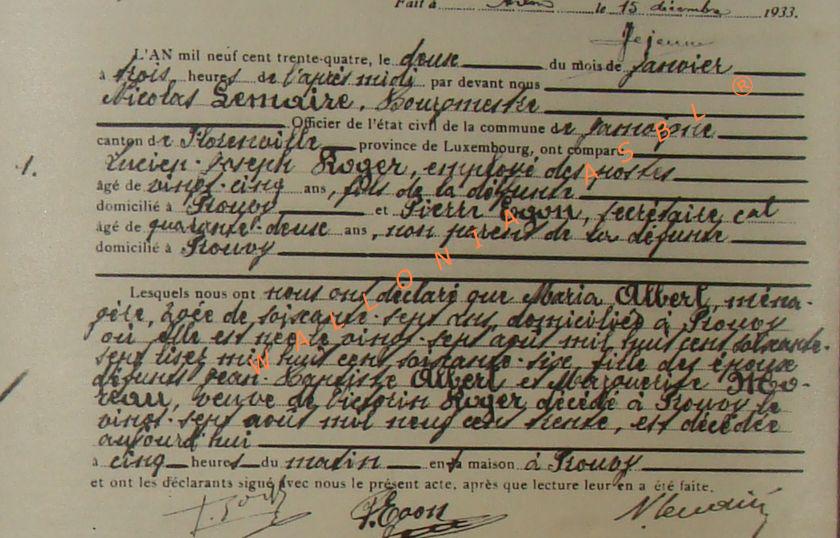 Fait à Arlon le 15 décembre 1933.
Jejeune
L'AN mil neuf cent trente-quatre, le douse du mois de janvier
à trois heures de l'après midi par devant nous
Nicolas Lemaire, Bourgmestre
Officier de l'état civil de la commune de Jamoigne
canton de Florenville province de Luxembourg, ont comparu
1. Lucien-Joseph Roger, employé des postes
âgé de vingt-cinq ans, fils de la défunte
domicilié à Prouvy et Pierre Egon, secrétaire cal
âgé de quarante-deuse ans, non parent de la défunte
domicilié à Prouvy
Lesquels nous ont nous ont déclaré que Maria Albert, ména-
gère, âgée de soixante-sept ans, domiciliée à Prouvy
où elle est née le vingt-sept août mil huit cent soixante-
sept lisez mil huit cent soixante-six, fille des époux
défunts Jean-Baptiste Albert et Marguerite Mo-
reau, veuve de Victorin Roger décédé à Prouvy le
vingt-sept août mil neuf cent trente, est décédée
aujourd'hui
à cinq heures du matin en sa maison à Prouvy
et ont les déclarants signé avec nous le présent acte, après que lecture leur en a été faite.
P. Egon N. Lemaire
WALLONIA ASBL ®